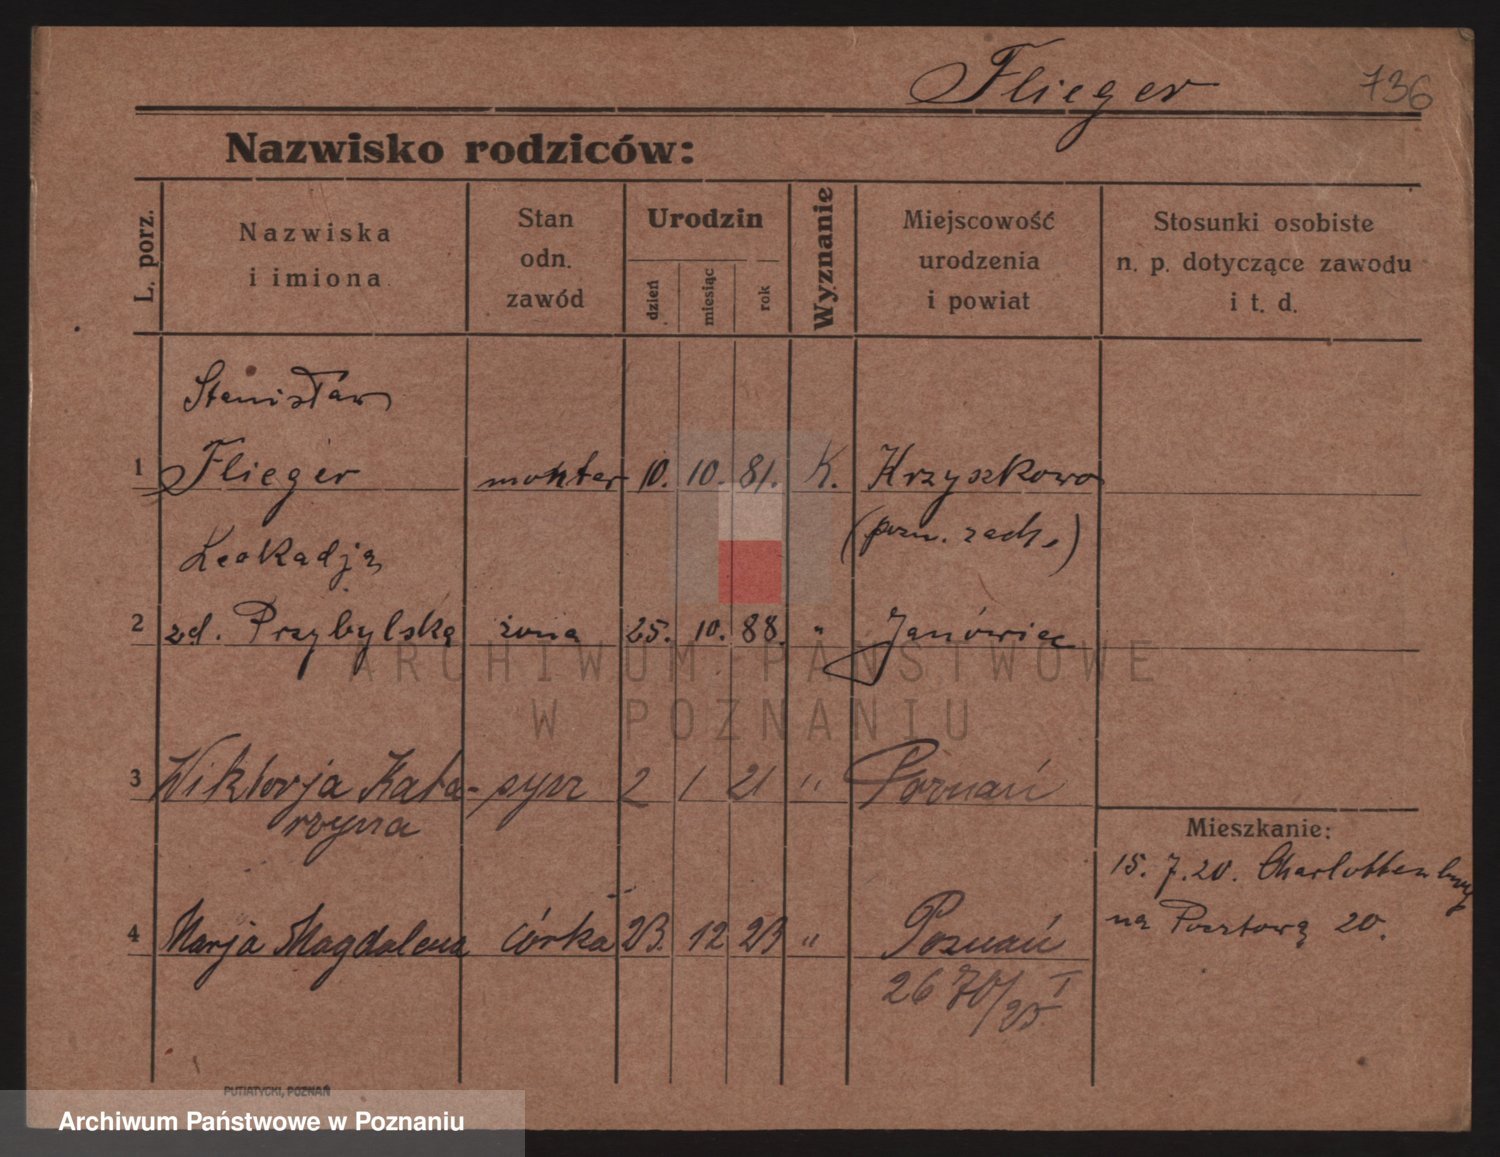 Flieger 736
Nazwisko rodziców:
L. porz.
Nazwiska
i imiona
Stan
odn.
zawód
Urodzin
dzień
miesiąc
rok
Wyznanie
Miejscowość
urodzenia
i powiat
Stosunki osobiste
n. p. dotyczące zawodu
i t. d.
Stanisław
1 Flieger monter 10. 10. 81. K. Krzyszkowo
(pozn. zach.)
Leokadja
2 zd. Przybylska żona 25. 10. 88. " Janówiec
ARCHIWUM PAŃSTWOWE
W POZNANIU
3 Wiktorja Kata- 2 1 21 " Poznań
rzyna
Mieszkanie:
15. 7. 20. Charlottenburg
na Pocztową 20.
4 Marja Magdalena córka 23. 12 23 " Poznań
PUTIATYCKI, POZNAŃ
Archiwum Państwowe w Poznaniu